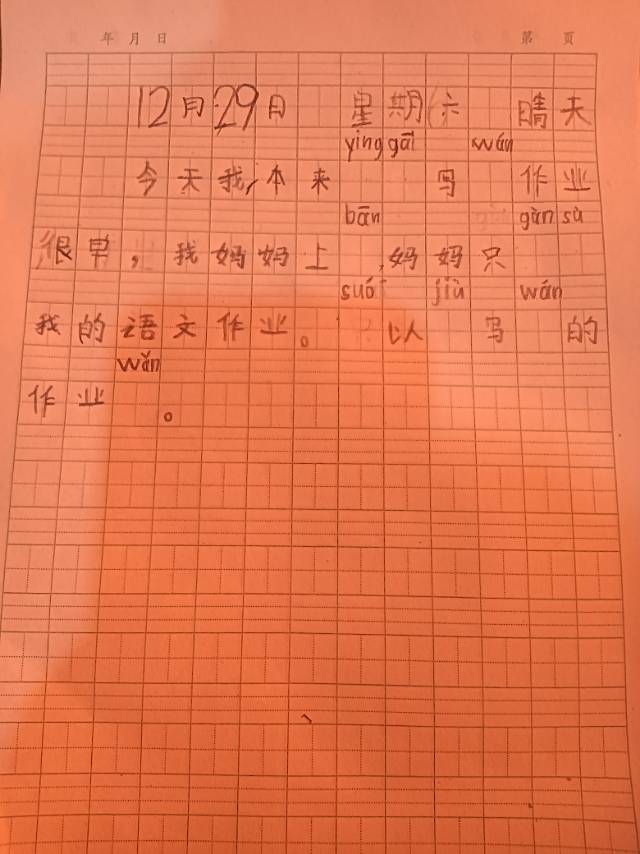 年 月 日 第 页
12月29日 星期六 晴天
yīng gāi wán
今天我本来 写 作业
bān gàn sù
很早，我妈妈上 ，妈妈只
suó jiù wán
我的语文作业。 以 写 的
wǎn
作业 。